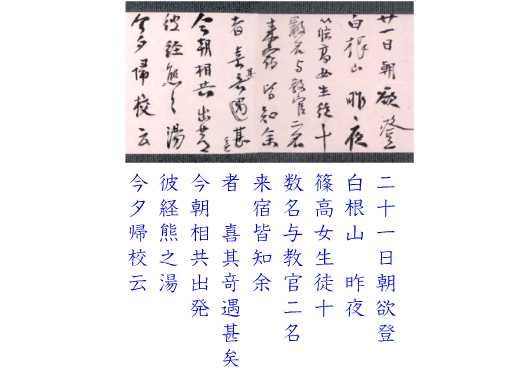 廿一日朝欲登
白根山 昨夜
篠高女生徒十
数名与教官二名
来宿皆知余
者喜其奇遇甚矣
今朝相共出発
彼経熊之湯
今夕帰校云
二十一日朝欲登
白根山 昨夜
篠高女生徒十
数名与教官二名
来宿皆知余
者 喜其奇遇甚矣
今朝相共出発
彼経熊之湯
今夕帰校云